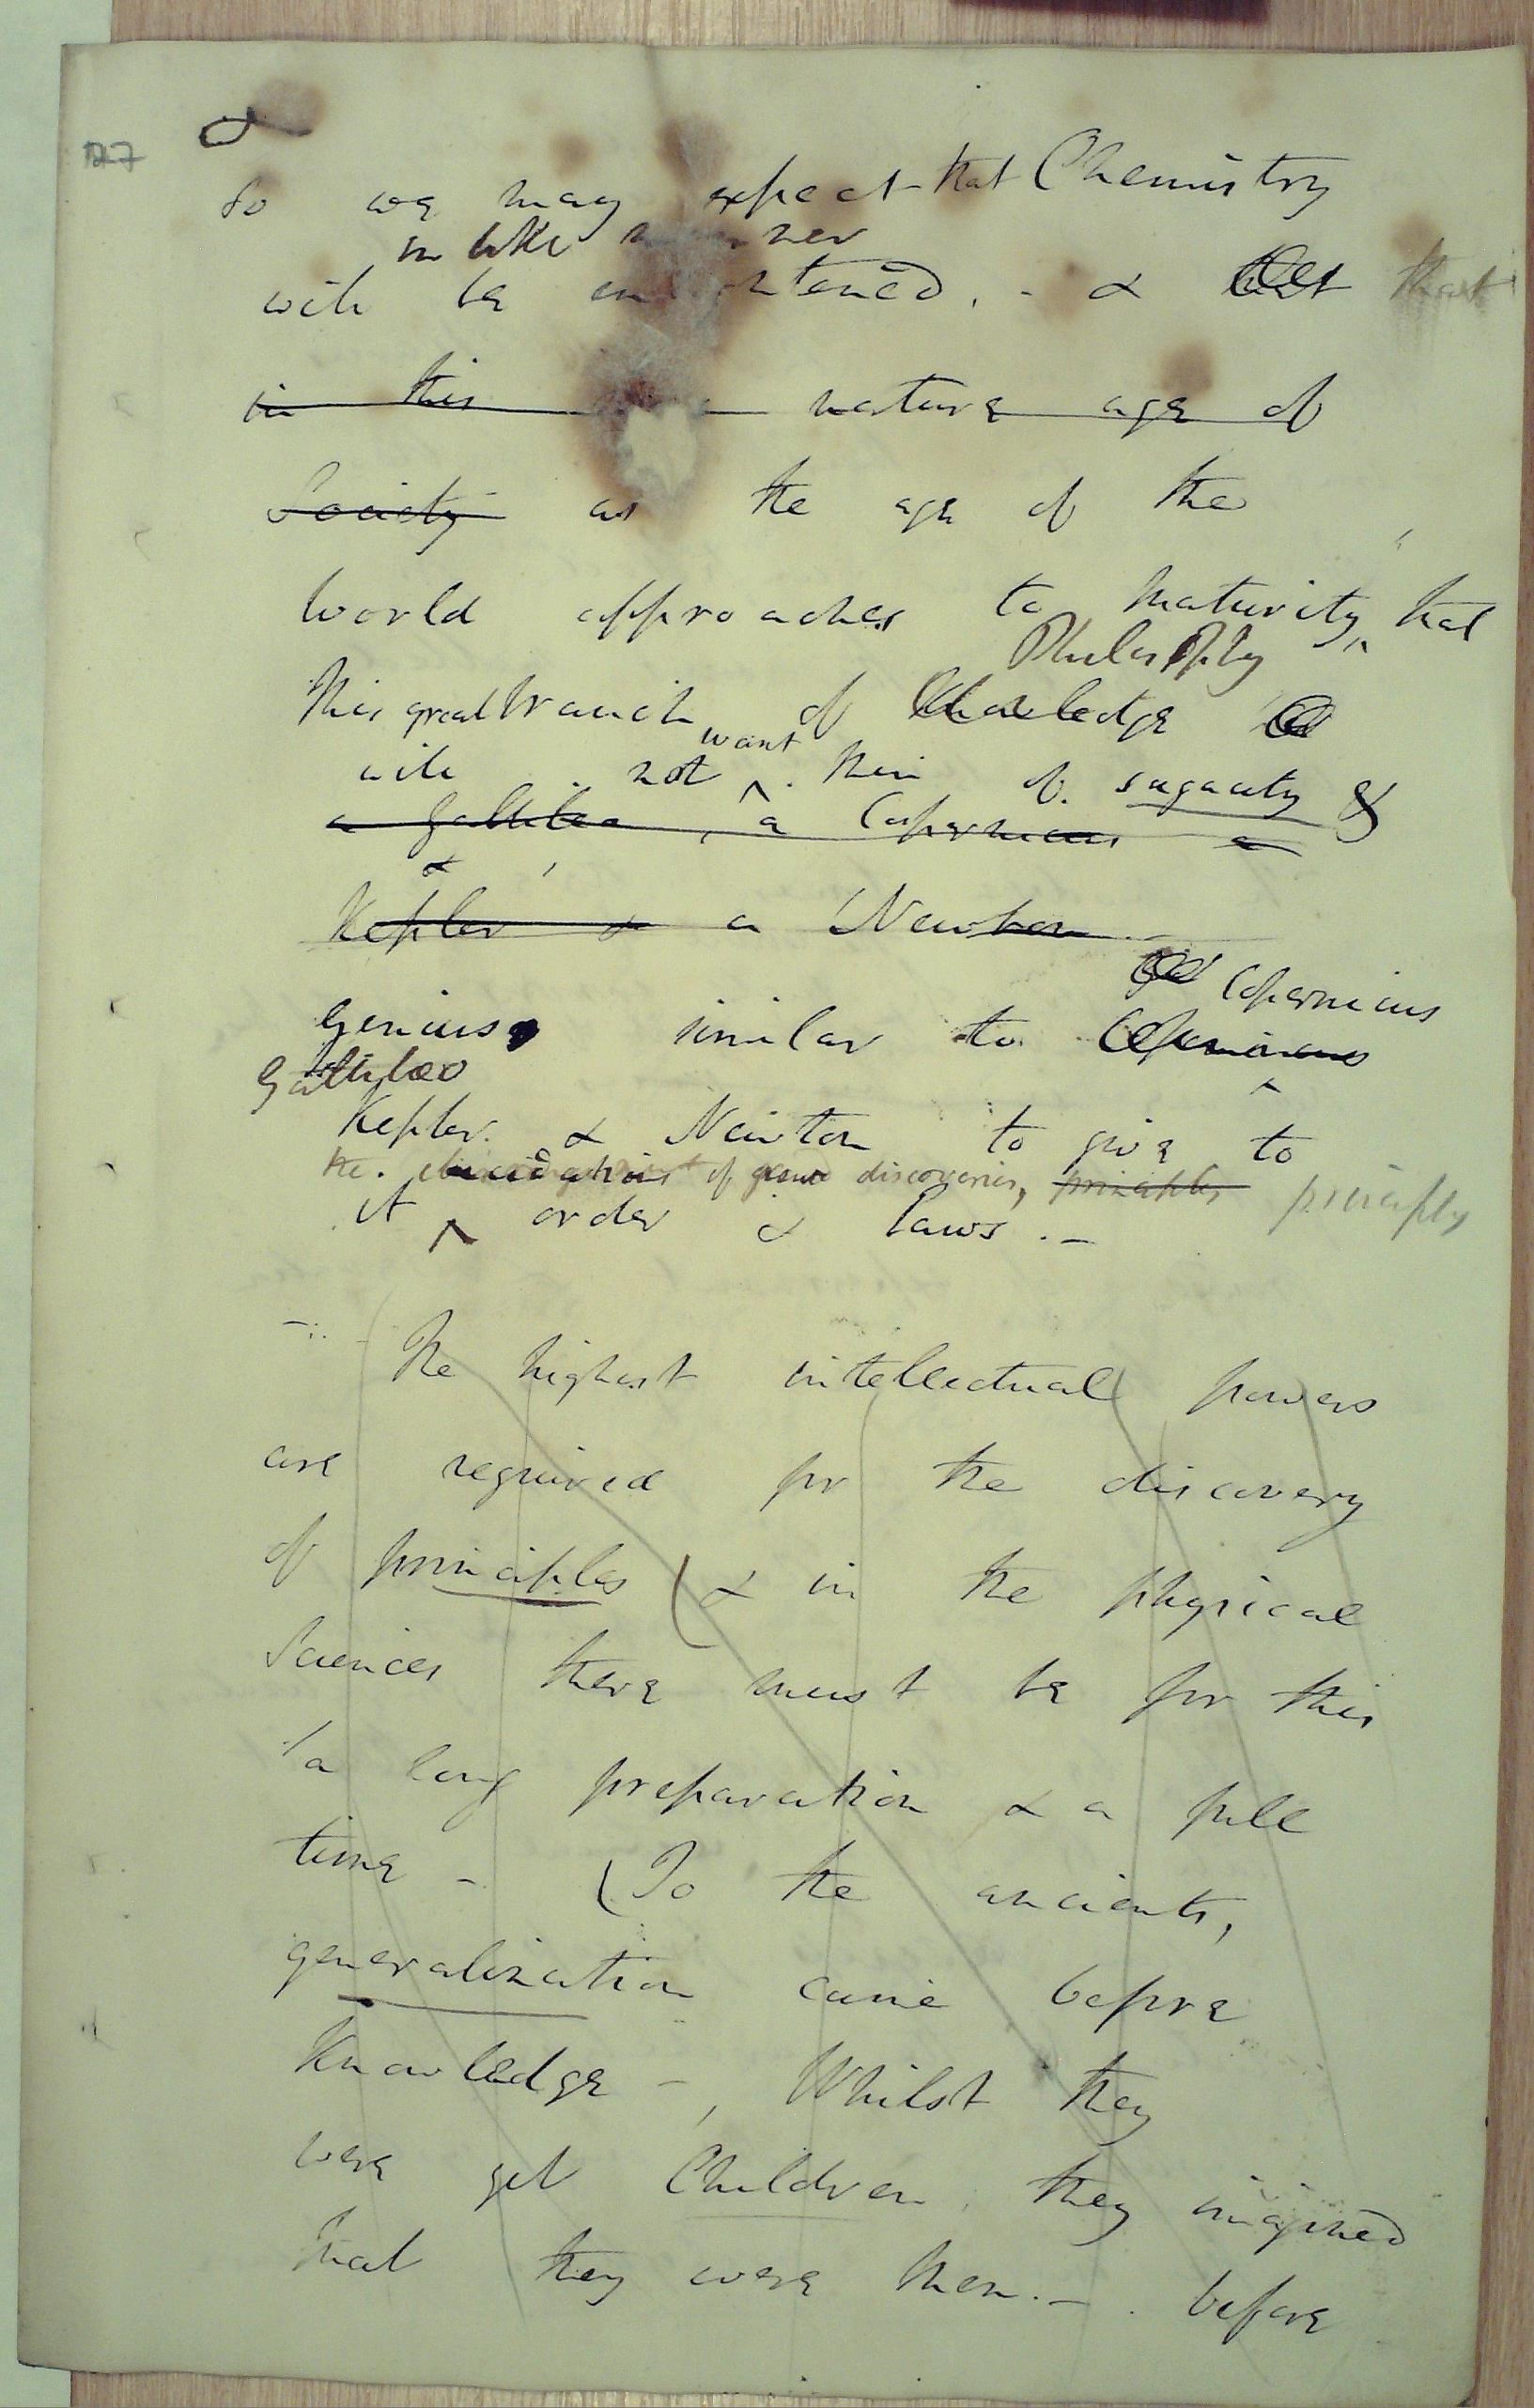 127
So we may expect that Chemistry
in like manner
will be enlightened. - & that
in this mature age of
Society as the age of the
World approaches to maturity, that
Philosophy
this great branch of Knowledge
want
will not men of sagacity &
a Gallileo, a Copernicus a
&
Kepler & a Newton
Copernicus
genius similar to Copernicus
Gallileo
Kepler & Newton to give to
the of discoveries, principles principles
it order & laws. -
The highest intellectual powers
are required for the discovery
of principles (& in the physical
Sciences there must be for this
a long preparation & a full
time - (To the ancients,
generalization came before
Knowledge -, Whilst they
were yet Children they imagined
that they were Men. - before